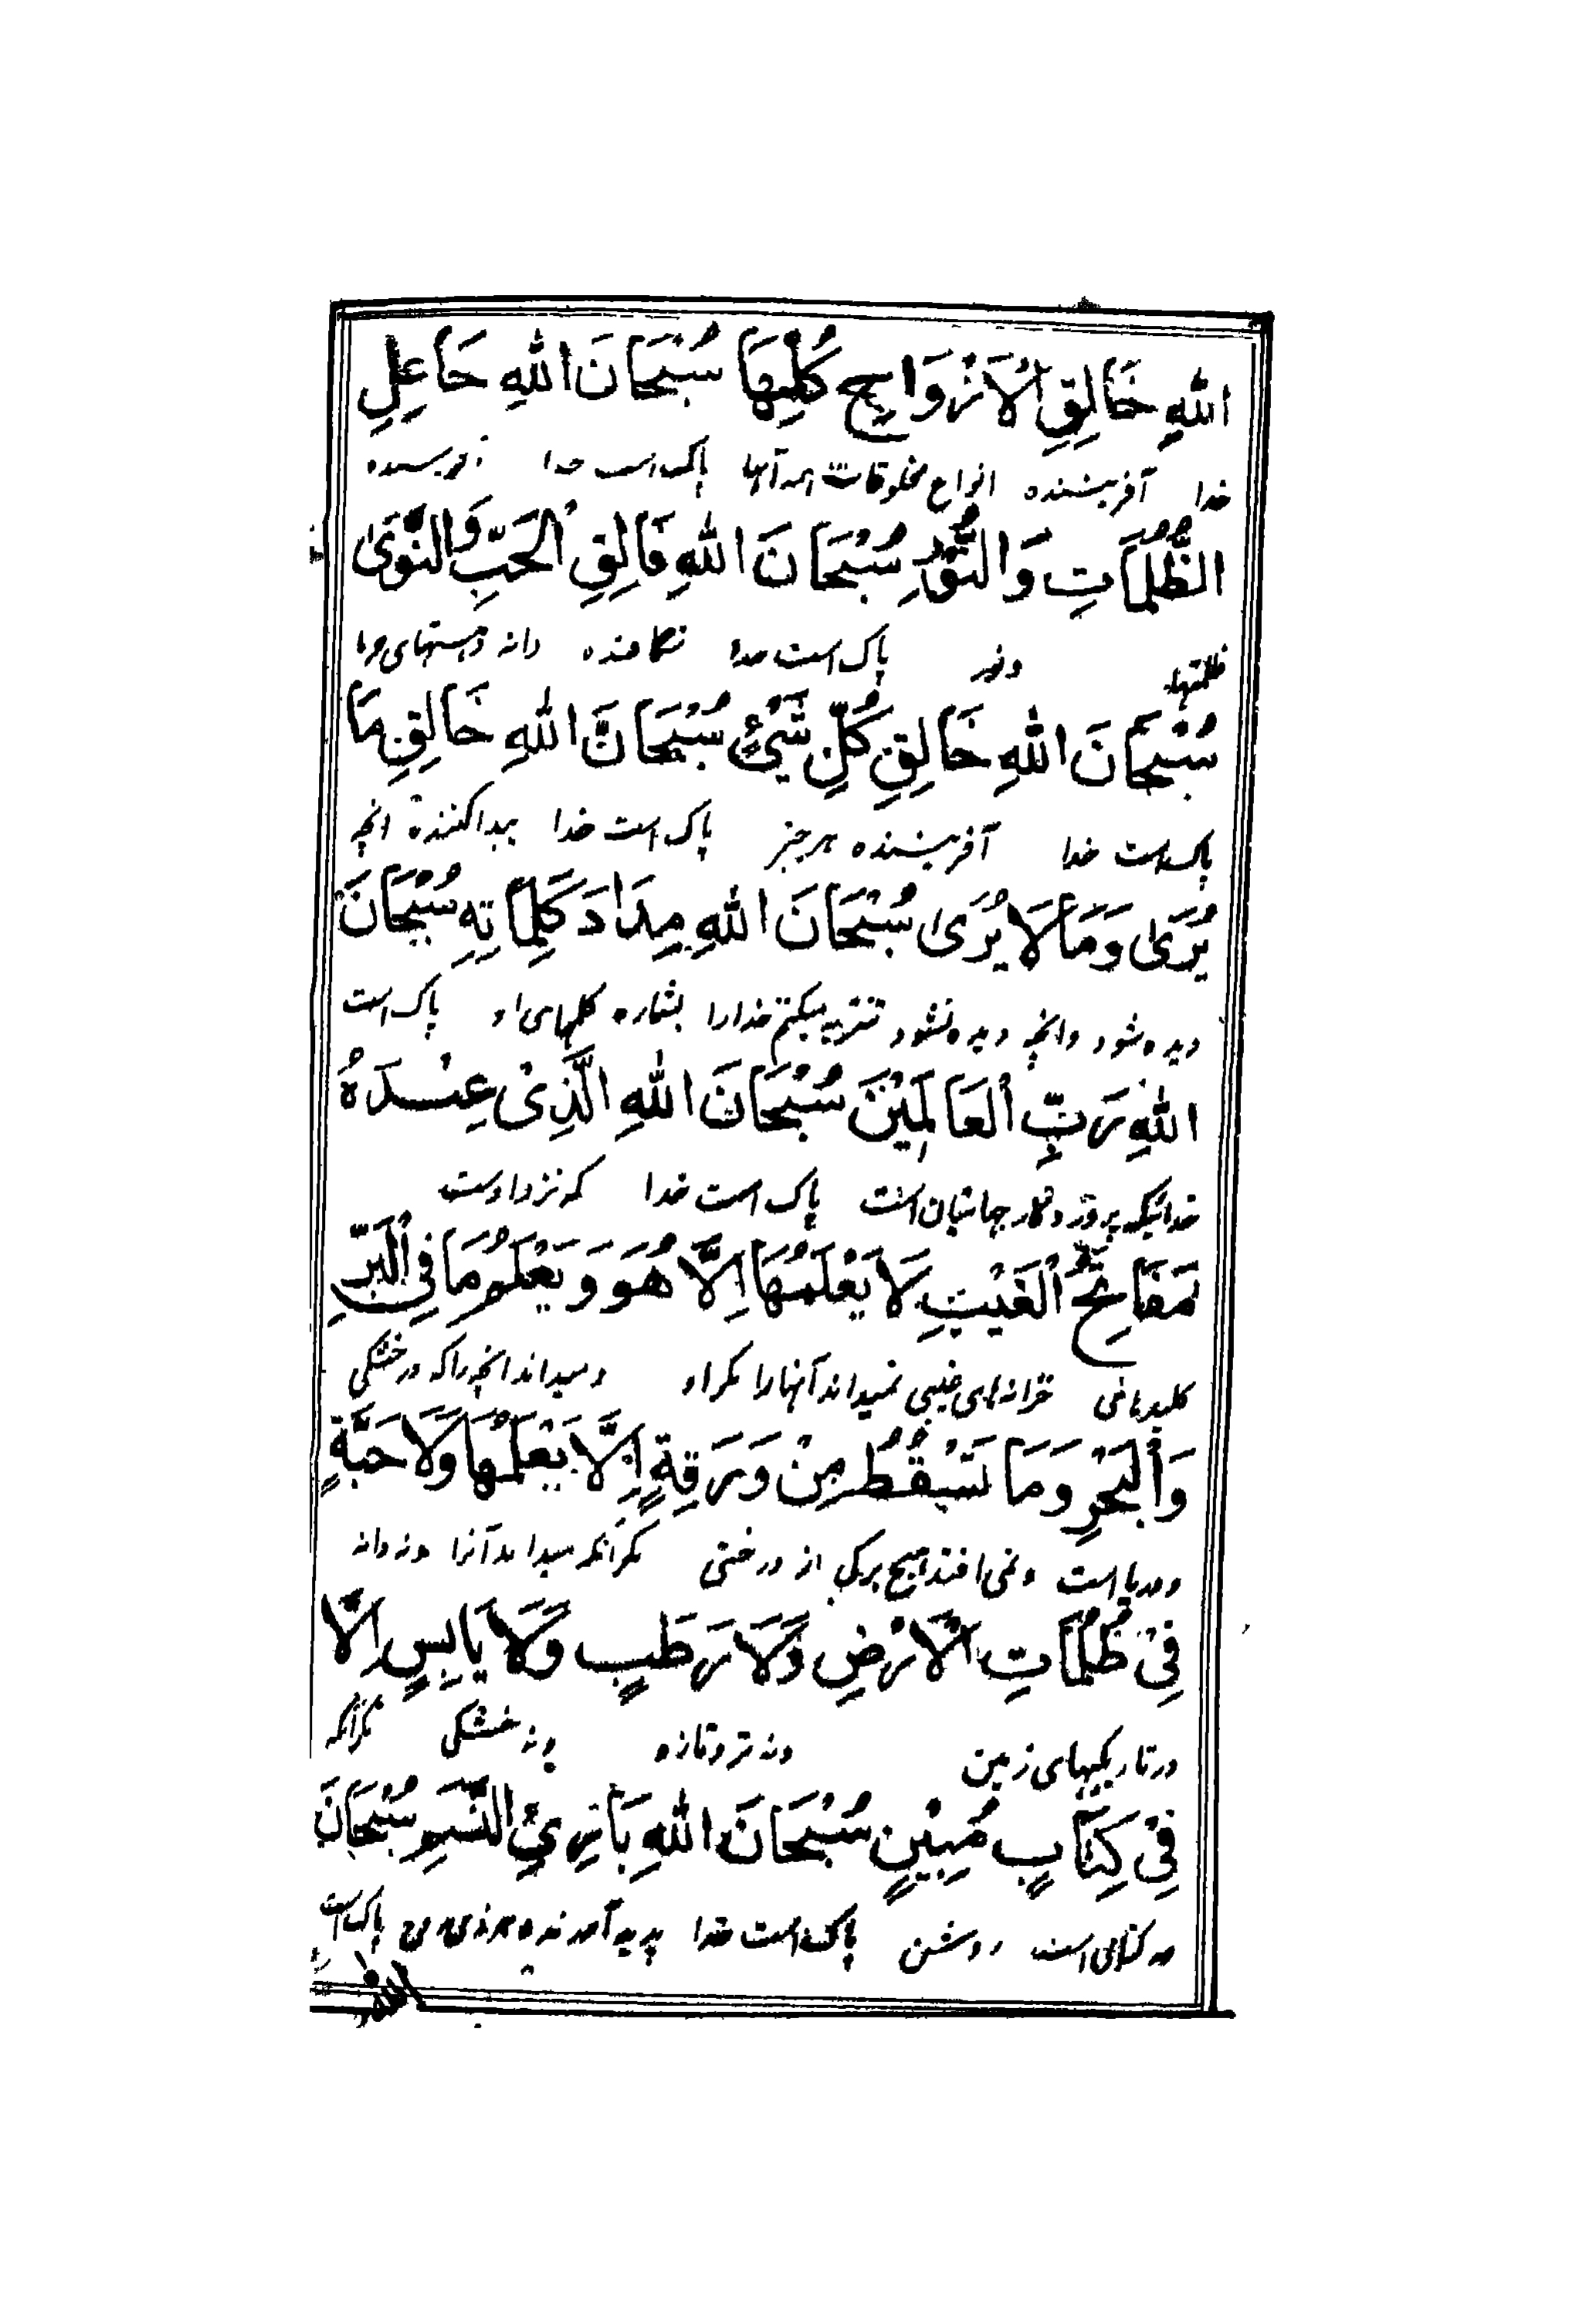 اللهِ خَالِقِ الْاَزْوَاجِ كُلِّهَا سُبْحَانَ اللهِ جَاعِلِ
خدا آفریننده انواع مخلوقات همه آنها پاک است خدا آفریننده
الظُّلُمَاتِ وَالنُّوْرِ سُبْحَانَ اللهِ فَالِقِ الْحَبِّ وَالنَّوَىٰ
ظلمتها ونور پاک است خدا شکافنده دانه
سُبْحَانَ اللهِ خَالِقِ كُلِّ شَيْءٍ سُبْحَانَ اللهِ خَالِقِ مَا
پاک است خدا آفریننده هر چیز پاک است خدا پیدا کننده انچه
يُرَىٰ وَمَا لَا يُرَىٰ سُبْحَانَ اللهِ مِدَادَ كَلِمَاتِهِ سُبْحَانَ
دیده شود وانچه دیده نشود تنزیه میکنم خدارا بشماره کلمهای او پاک است
اللهِ رَبِّ الْعَالَمِيْنَ سُبْحَانَ اللهِ الَّذِىْ عِنْدَهُ
خدائیکه پروردگار جهانیان است پاک است خدا که نزد اوست
مَفَاتِحُ الْغَيْبِ لَا يَعْلَمُهَا اِلَّا هُوَ وَيَعْلَمُ مَا فِى الْبَرِّ
خزانه‌های غیبی نمیداند آنهارا مگر او ومیداند انچه را که در خشکی
وَالْبَحْرِ وَمَا تَسْقُطُ مِنْ وَرَقِةٍ اِلَّا يَعْلَمُهَا وَلَا حَبَّةٍ
ودریا است ونمی افتد هیچ برکی از درختی مگر آنکه میداند آنرا ونه دانه
فِىْ ظُلُمَاتِ الْاَرْضِ وَلَا رَطْبٍ وَلَا يَابِسٍ اِلَّا
در تاریکیهای زمین ونه تر وتازه ونه خشکی مگر آنکه
فِىْ كِتَابٍ مُبِيْنٍ سُبْحَانَ اللهِ بَارِئِ النَّسَمِ سُبْحَانَ
در کتابی است روشن پاک است خدا پدید آورنده هر ذی روح پاک است
الله